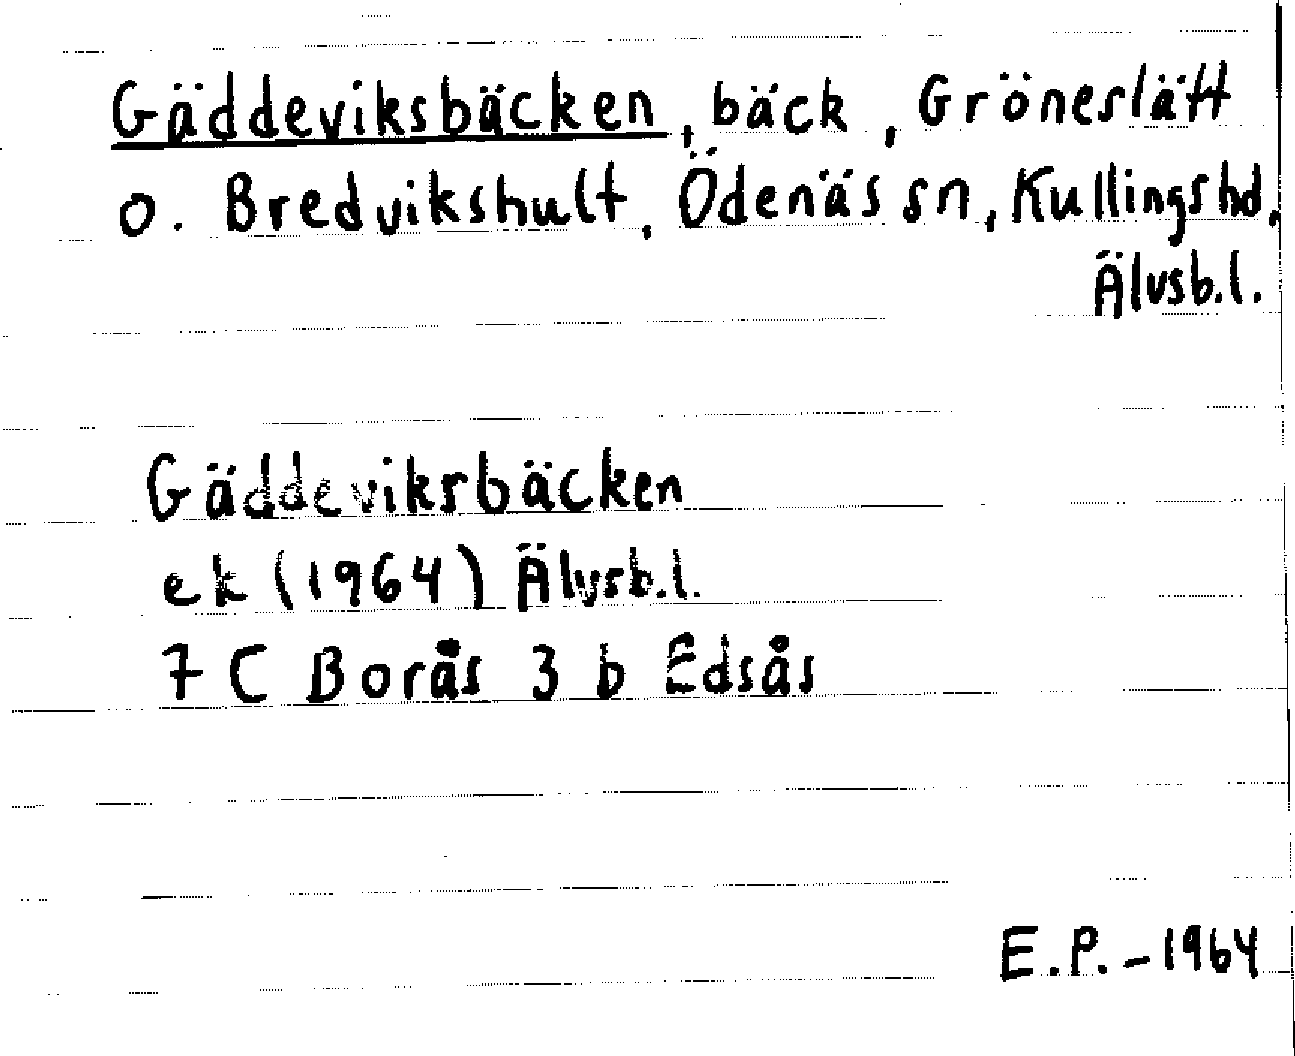 Gäddeviksbäcken, bäck, Gröneslätt
o. Bredvikshult, Ödenäs sn, Kullings hd,
Älvsb.l.
Gäddeviksbäcken
ek (1964) Älvsb.l.
7 C Borås 3 b Edsås
E.P. - 1964